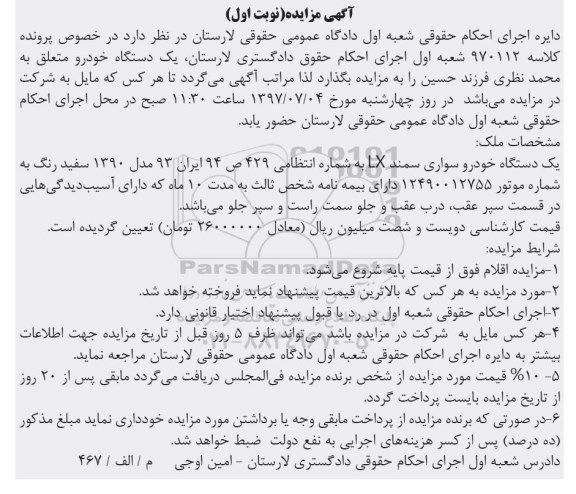 آگهی مزایده(نوبت اول)
دایره اجرای احکام حقوقی شعبه اول دادگاه عمومی حقوقی لارستان در نظر دارد در خصوص پرونده
کلاسه ۹۷۰۱۱۲ شعبه اول اجرای احکام حقوق دادگستری لارستان، یک دستگاه خودرو متعلق به
محمد نظری فرزند حسین را به مزایده بگذارد لذا مراتب آگهی می‌گردد تا هر کس که مایل به شرکت
در مزایده می‌باشد در روز چهارشنبه مورخ ۱۳۹۷/۰۷/۰۴ ساعت ۱۱:۳۰ صبح در محل اجرای احکام
حقوقی شعبه اول دادگاه عمومی حقوقی لارستان حضور یابد.
مشخصات ملک:
یک دستگاه خودرو سواری سمند LX به شماره انتظامی ۴۲۹ ص ۹۴ ایران ۹۳ مدل ۱۳۹۰ سفید رنگ به
شماره موتور ۱۲۴۹۰۰۱۲۷۵۵ دارای بیمه نامه شخص ثالث به مدت ۱۰ ماه که دارای آسیب‌دیدگی‌هایی
در قسمت سپر عقب، درب عقب و جلو سمت راست و سپر جلو می‌باشد.
قیمت کارشناسی دویست و شصت میلیون ریال (معادل ۲۶۰۰۰۰۰۰ تومان) تعیین گردیده است.
شرایط مزایده:
۱-مزایده اقلام فوق از قیمت پایه شروع می‌شود.
۲-مورد مزایده به هر کس که بالاترین قیمت پیشنهاد نماید فروخته خواهد شد.
۳-اجرای احکام حقوقی شعبه اول در رد یا قبول پیشنهاد اختیار قانونی دارد.
۴-هر کس مایل به شرکت در مزایده باشد می‌تواند ظرف ۵ روز قبل از تاریخ مزایده جهت اطلاعات
بیشتر به دایره اجرای احکام حقوقی شعبه اول دادگاه عمومی حقوقی لارستان مراجعه نماید.
۵- ۱۰% قیمت مورد مزایده از شخص برنده مزایده فی‌المجلس دریافت می‌گردد مابقی پس از ۲۰ روز
از تاریخ مزایده بایست پرداخت گردد.
۶-در صورتی که برنده مزایده از پرداخت مابقی وجه یا برداشتن مورد مزایده خودداری نماید مبلغ مذکور
(ده درصد) پس از کسر هزینه‌های اجرایی به نفع دولت ضبط خواهد شد.
دادرس شعبه اول اجرای احکام حقوقی دادگستری لارستان - امین اوجی م / الف / ۴۶۷
ParsNamadData
۰۲۱-۸۸۳۴۹۶۷۰-۵